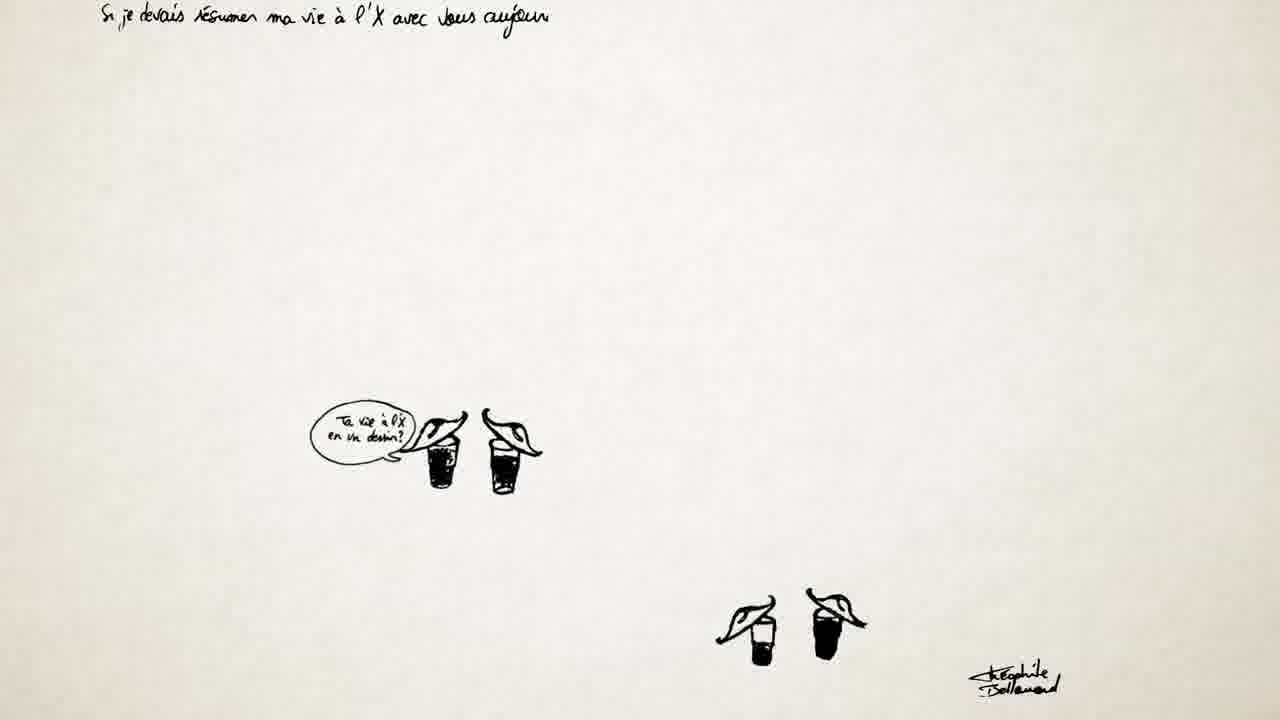 Si je devais résumer ma vie à l'X avec vous aujour
Ta vie à l'X
en un dessin?
Théophile